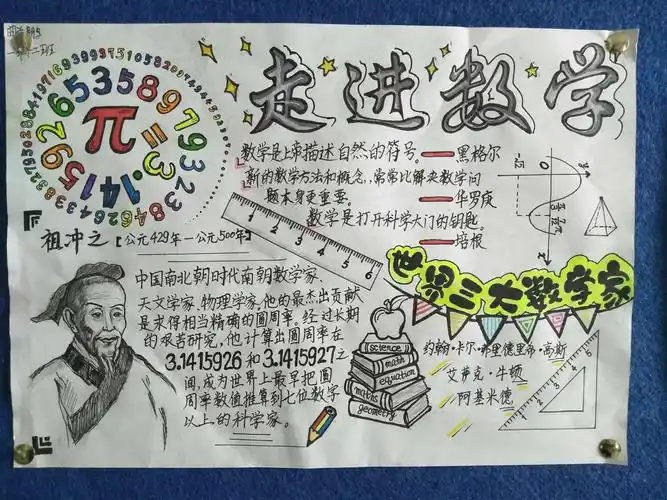 二班
走进数学
π=3.14159265358979323846
数学是上帝描述自然的符号。——黑格尔
新的数学方法和概念，常常比解决数学问
题本身更重要。——华罗庚
数学是打开科学大门的钥匙。
——培根
祖冲之【公元429年—公元500年】
中国南北朝时代南朝数学家、
天文学家、物理学家。他的最杰出贡献
是求得相当精确的圆周率。经过长期
的艰苦研究，他计算出圆周率在
3.1415926和3.1415927之
间，成为世界上最早把圆
周率数值推算到七位数字
以上的科学家。
0 1 2 3 4 5 6
science
math
equation
maths
geometry
世界三大数学家
约翰·卡尔·弗里德里希·高斯
艾萨克·牛顿
阿基米德
1 2 3 4 5
y
0
x